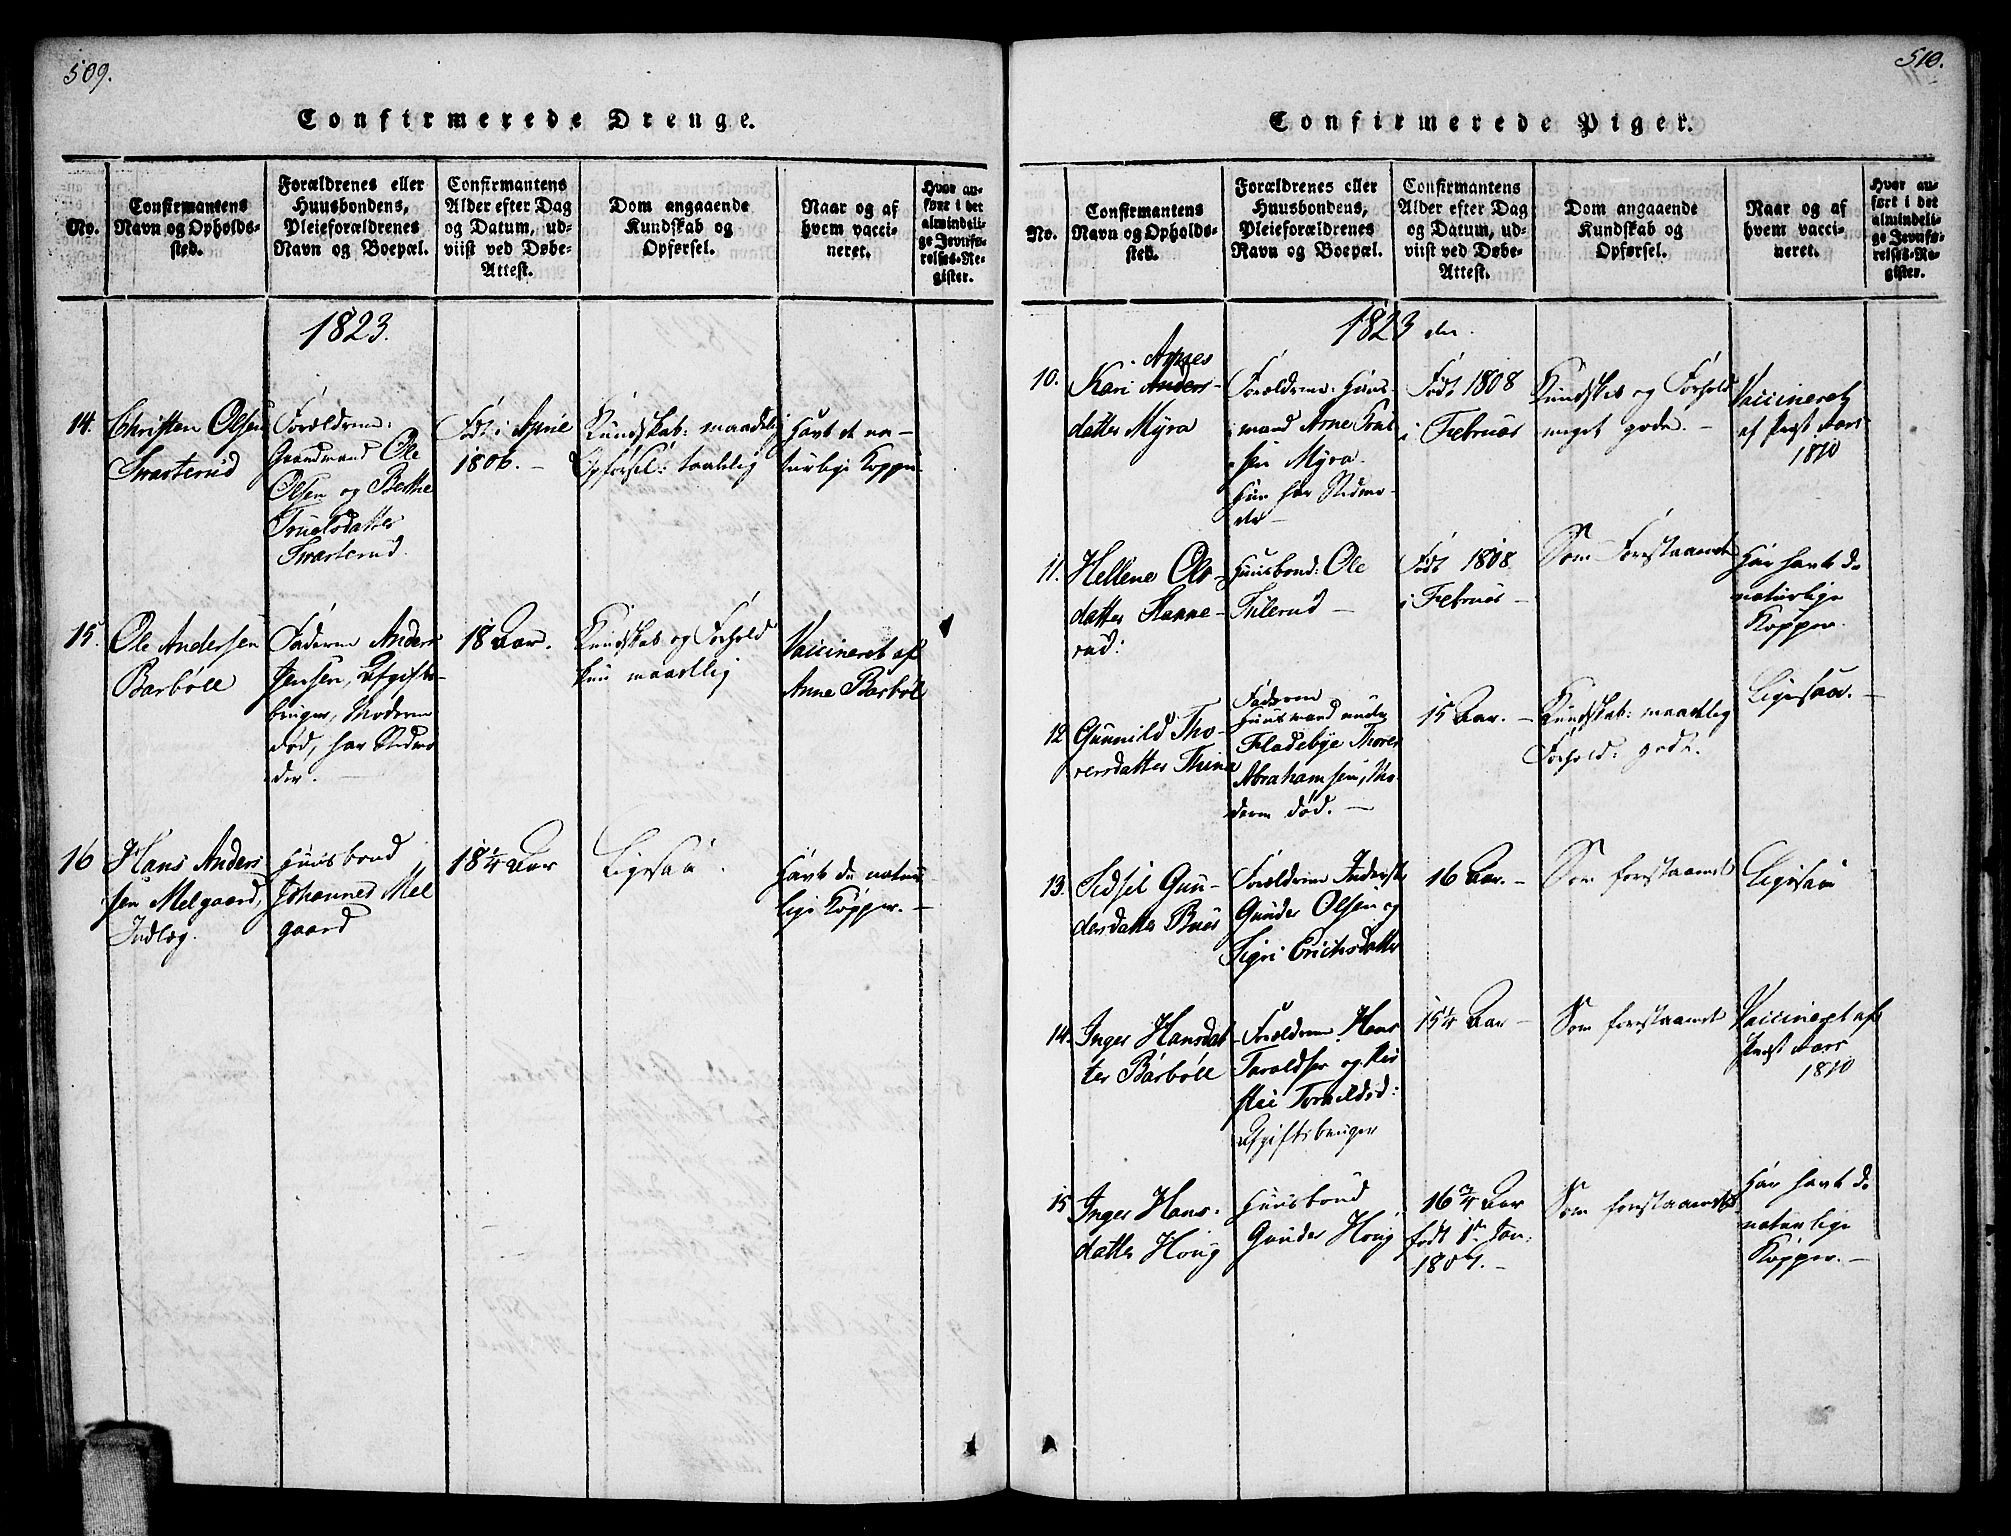 509.
Confirmerede Drenge.
No.
Confirmantens
Navn og Opholds-
sted.
Forældrenes eller
Huusbondens,
Pleieforældrenes
Navn og Boepæl.
Confirmantens
Alder efter Dag
og Datum, ud-
viist ved Døbe-
Attest.
Dom angaaende
Kundskab og
Opførsel.
Naar og af
hvem vacci-
neret.
Hvor an-
ført i det
almindeli-
ge Jevnfø-
relses-Re-
gister.
1823.
14.
Christen Olsen
Svarterud
Forældrene:
Gaardmand Ole
Olsen og Berthe
Truelsdatter
Svarterud.
Født i April
1806. -
Kundskab: maadelig
Opførsel: taalelig
Havt de na-
turlige Kopper
15.
Ole Andersen
Barbøll
Faderen Anders
Jensen, Afgifts-
bruger, Moderen
død, har Stedmo
der. -
18 Aar.
Kundskab og Forhold
kun maadelig
Vaccineret af
Anne Barbøl
16
Hans Anders
sen Melgaard,
Indlæg.
Huusbond
Johannes Mel
gaard
18 1/4 Aar
Ligesaa.
Havt de natur
lige Kopper. -
510.
Confirmerede Piger.
No.
Confirmantens
Navn og Opholds-
sted.
Forældrenes eller
Huusbondens,
Pleieforældrenes
Navn og Boepæl.
Confirmantens
Alder efter Dag
og Datum, ud-
viist ved Døbe-
Attest.
Dom angaaende
Kundskab og
Opførsel.
Naar og af
hvem vacci-
neret.
Hvor an-
ført i det
almindeli-
ge Jevnfø-
relses-Re-
gister.
1823
10.
Kari Anders-
datter Myra
Forældrene: Huus-
mand Arne
sen Myra.
Hun har Stedmo-
der -
Født 1808
i Februar
Kundskab og Forhold
meget gode. -
Vaccineret
af Præst Aars
1810
11.
Hellene Ols-
datter
rud:
Huusbond: Ole
Tulerud -
Født 1808
i Februar -
Som Forstaaende
Har havt de
naturlige
Kopper.
12
Gunnild Tho-
rersdatter Thina
Faderen
Huusmand under
Fladebye Thorer
Abrahamsen, Mo-
deren død. -
15 Aar. -
Kundskab: maadelig
Forhold: godt.
Ligesaa. -
13.
Sidsel Gun-
dersdatter Buer
Forældrene Inderst
Gunder Olsen og
Sigri Erichsdatter
16 Aar. -
Som forstaaende
Ligesaa
14.
Inger Hansdat
ter Barbøll
Forældrene Hans
Taraldsen og
Afgiftsbruger
15 1/4 Aar -
Som forstaaende
Vaccineret af
Præst Aars
1810
15
Inger Hans-
datter Houg
Huusbond
Gunder Houg
16 3/4 Aar
født 1. Jan:
1807. -
Som forstaaende
Har havt de
naturlige
Kopper. -